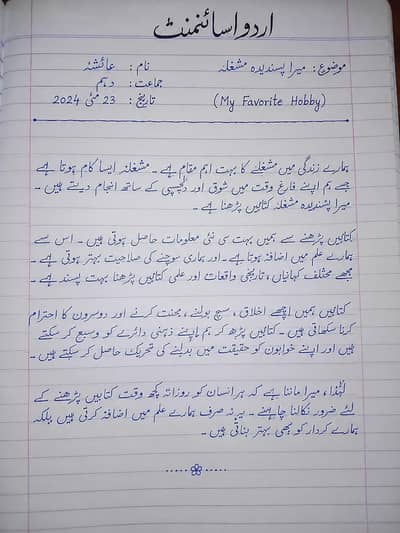 اردو اسائنمنٹ
موضوع : میرا پسندیدہ مشغلہ نام : عائشہ
جماعت : دہم
(My Favorite Hobby) تاریخ : 23 مئی 2024
ہمارے زندگی میں مشغلے کا بہت اہم مقام ہے ۔ مشغلہ ایسا کام ہوتا ہے
جسے ہم اپنے فارغ وقت میں شوق اور دلچسپی کے ساتھ انجام دیتے ہیں ۔
میرا پسندیدہ مشغلہ کتابیں پڑھنا ہے ۔
کتابیں پڑھنے سے ہمیں بہت سی نئی معلومات حاصل ہوتی ہیں ۔ اس سے
ہمارے علم میں اضافہ ہوتا ہے ۔ اور ہماری سوچنے کی صلاحیت بہتر ہوتی ہے ۔
مجھے مختلف کہانیاں ، تاریخی واقعات اور علمی کتابیں پڑھنا بہت پسند ہے ۔
کتابیں ہمیں اچھے اخلاق ، سچ بولنے ، محنت کرنے اور دوسروں کا احترام
کرنا سکھاتی ہیں ۔ کتابیں پڑھ کر ہم اپنے ذہنی دائرے کو وسیع کر سکتے
ہیں اور اپنے خوابوں کو حقیقت میں بدلنے کی تحریک حاصل کر سکتے ہیں ۔
لہٰذا ، میرا ماننا ہے کہ ہر انسان کو روزانہ کچھ وقت کتابیں پڑھنے کے
لئے ضرور نکالنا چاہیئے ۔ یہ نہ صرف ہمارے علم میں اضافہ کرتی ہیں بلکہ
ہمارے کردار کو بھی بہتر بناتی ہیں ۔